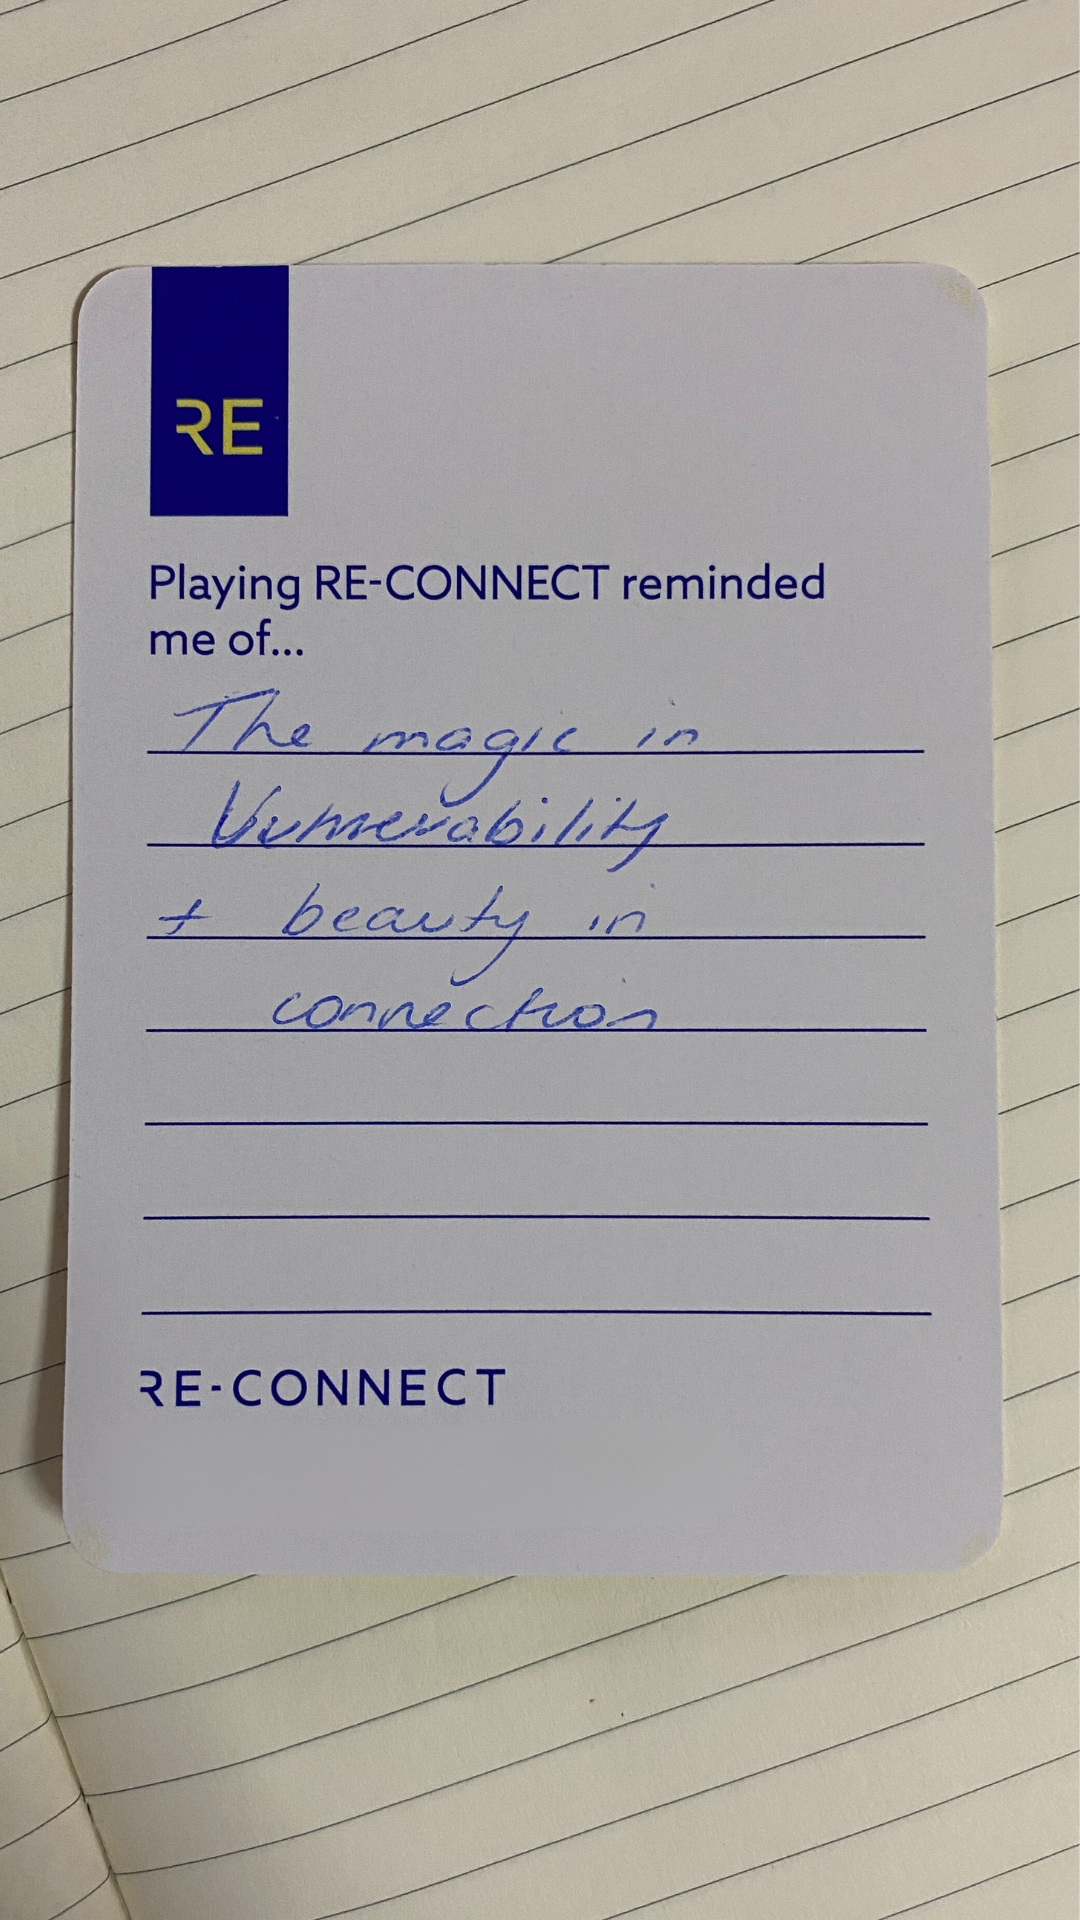 RE
Playing RE-CONNECT reminded
me of...
The magic in
Vulnerability
+ beauty in
connection
RE-CONNECT